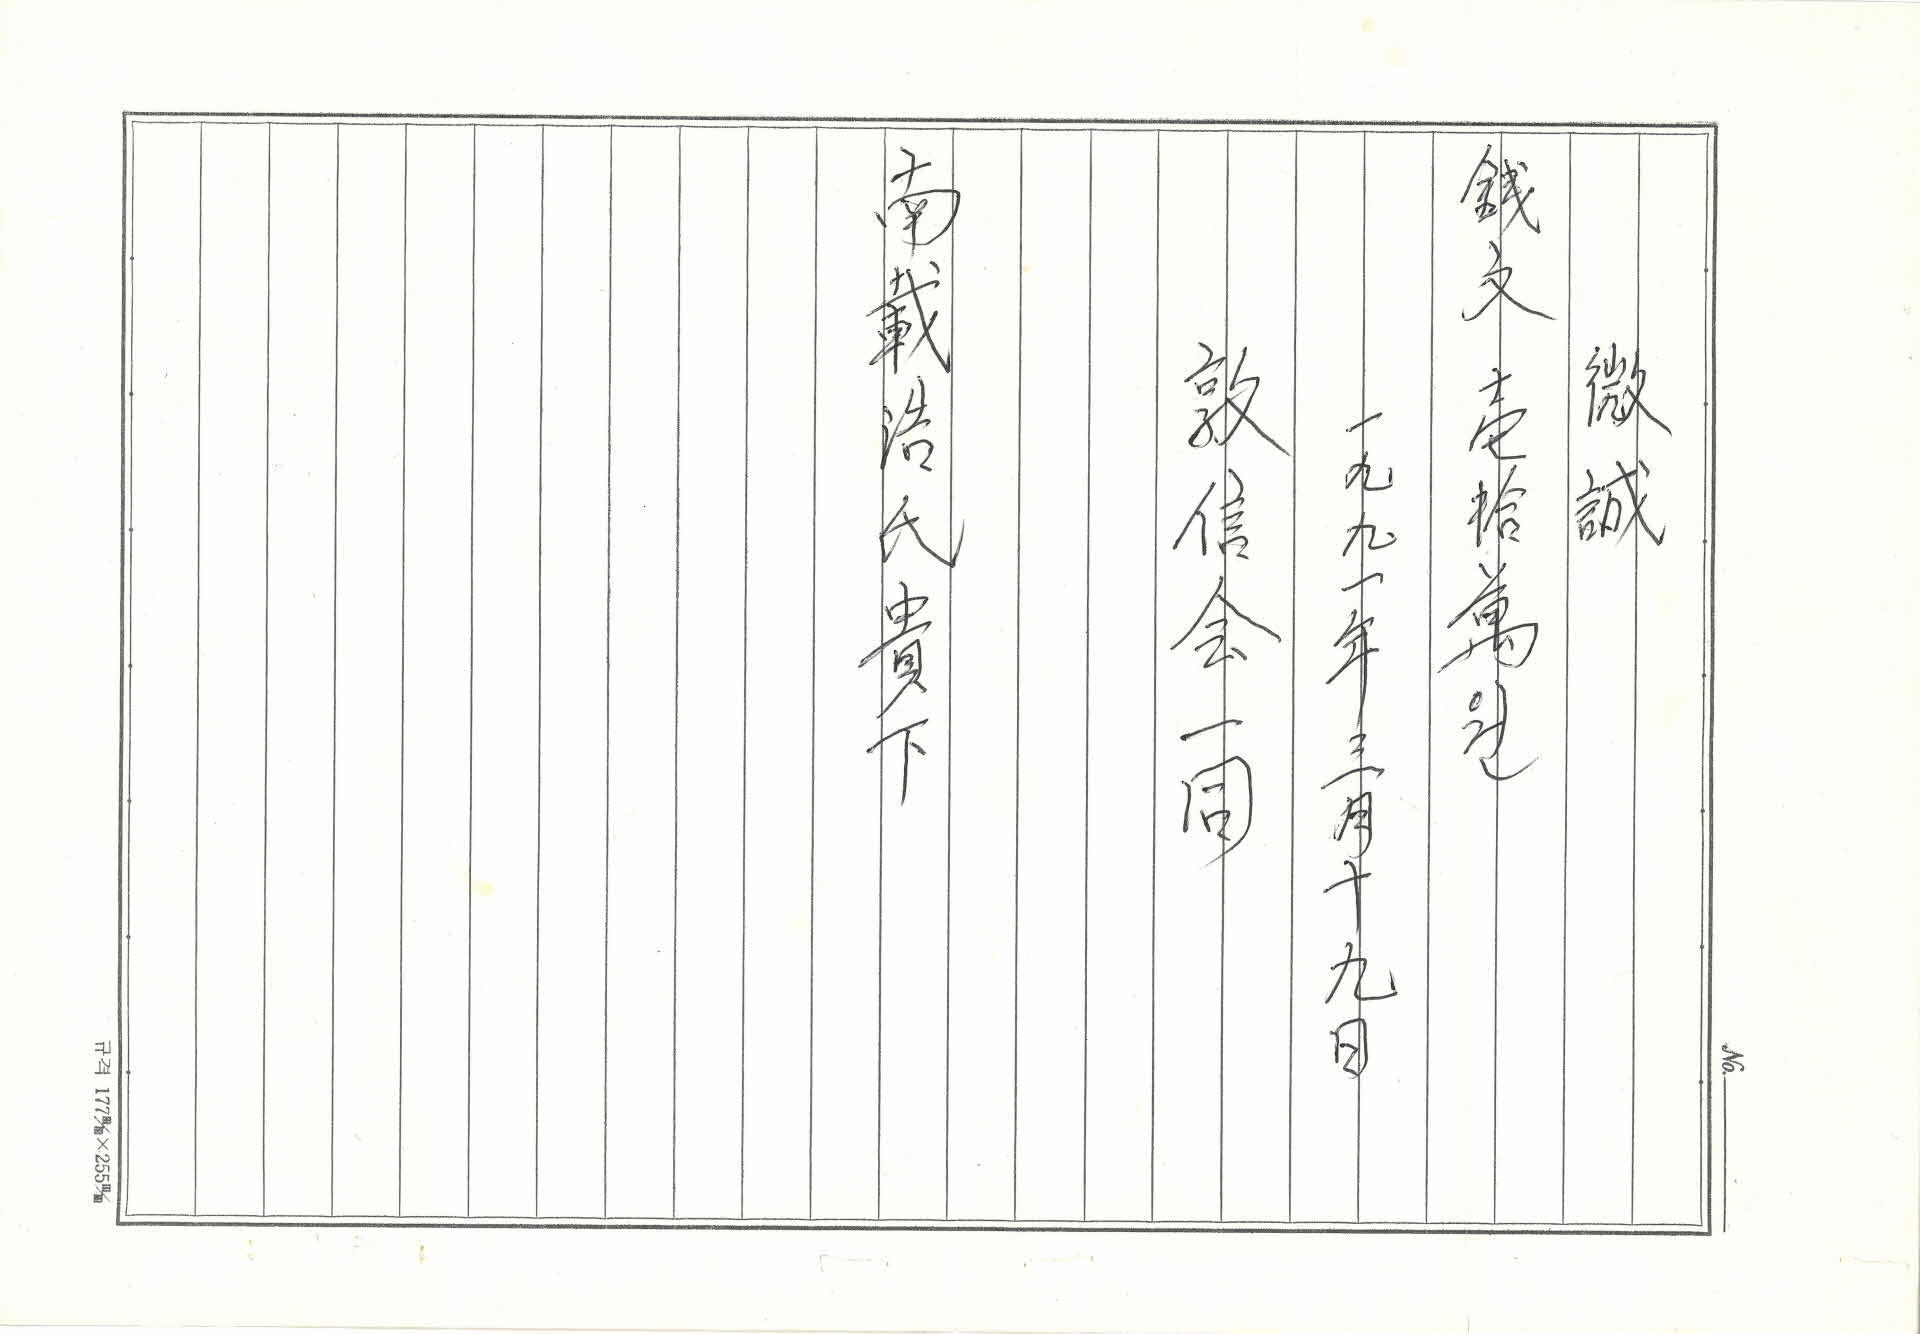 微誠
錢文 壱拾萬원
一九九一年三月十九日
敦信会一同
南載浩氏貴下
No.
규격 177㎜×255㎜